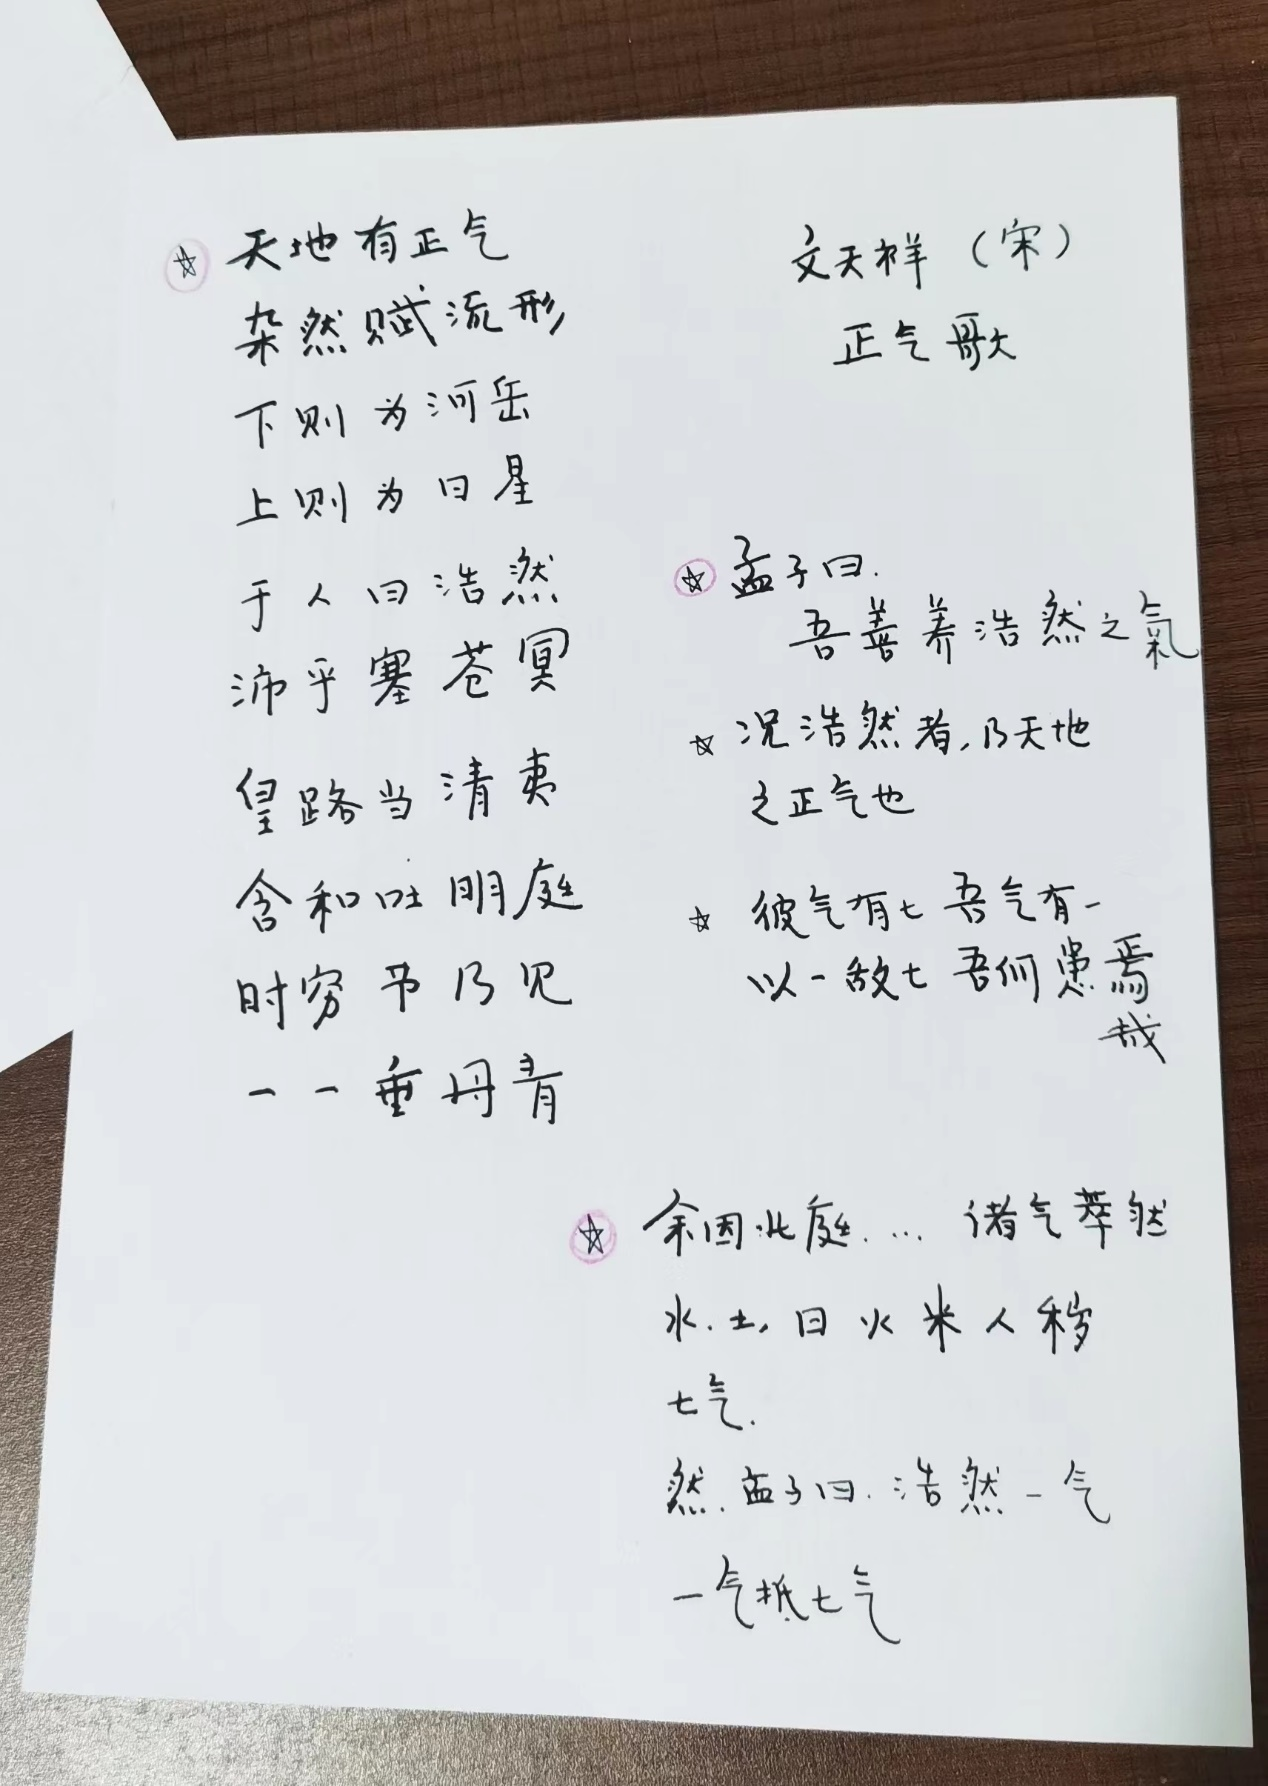 文天祥（宋）
正气歌
天地有正气
杂然赋流形
下则为河岳
上则为日星
于人曰浩然
沛乎塞苍冥
皇路当清夷
含和吐明庭
时穷节乃见
一一垂丹青
孟子曰.
吾善养浩然之氣
况浩然者,乃天地
之正气也
彼气有七 吾气有一
以一敌七 吾何患焉
哉
余因北庭.... 诸气萃然
水.土,日火米人秽
七气.
然.孟子曰.浩然一气
一气抵七气